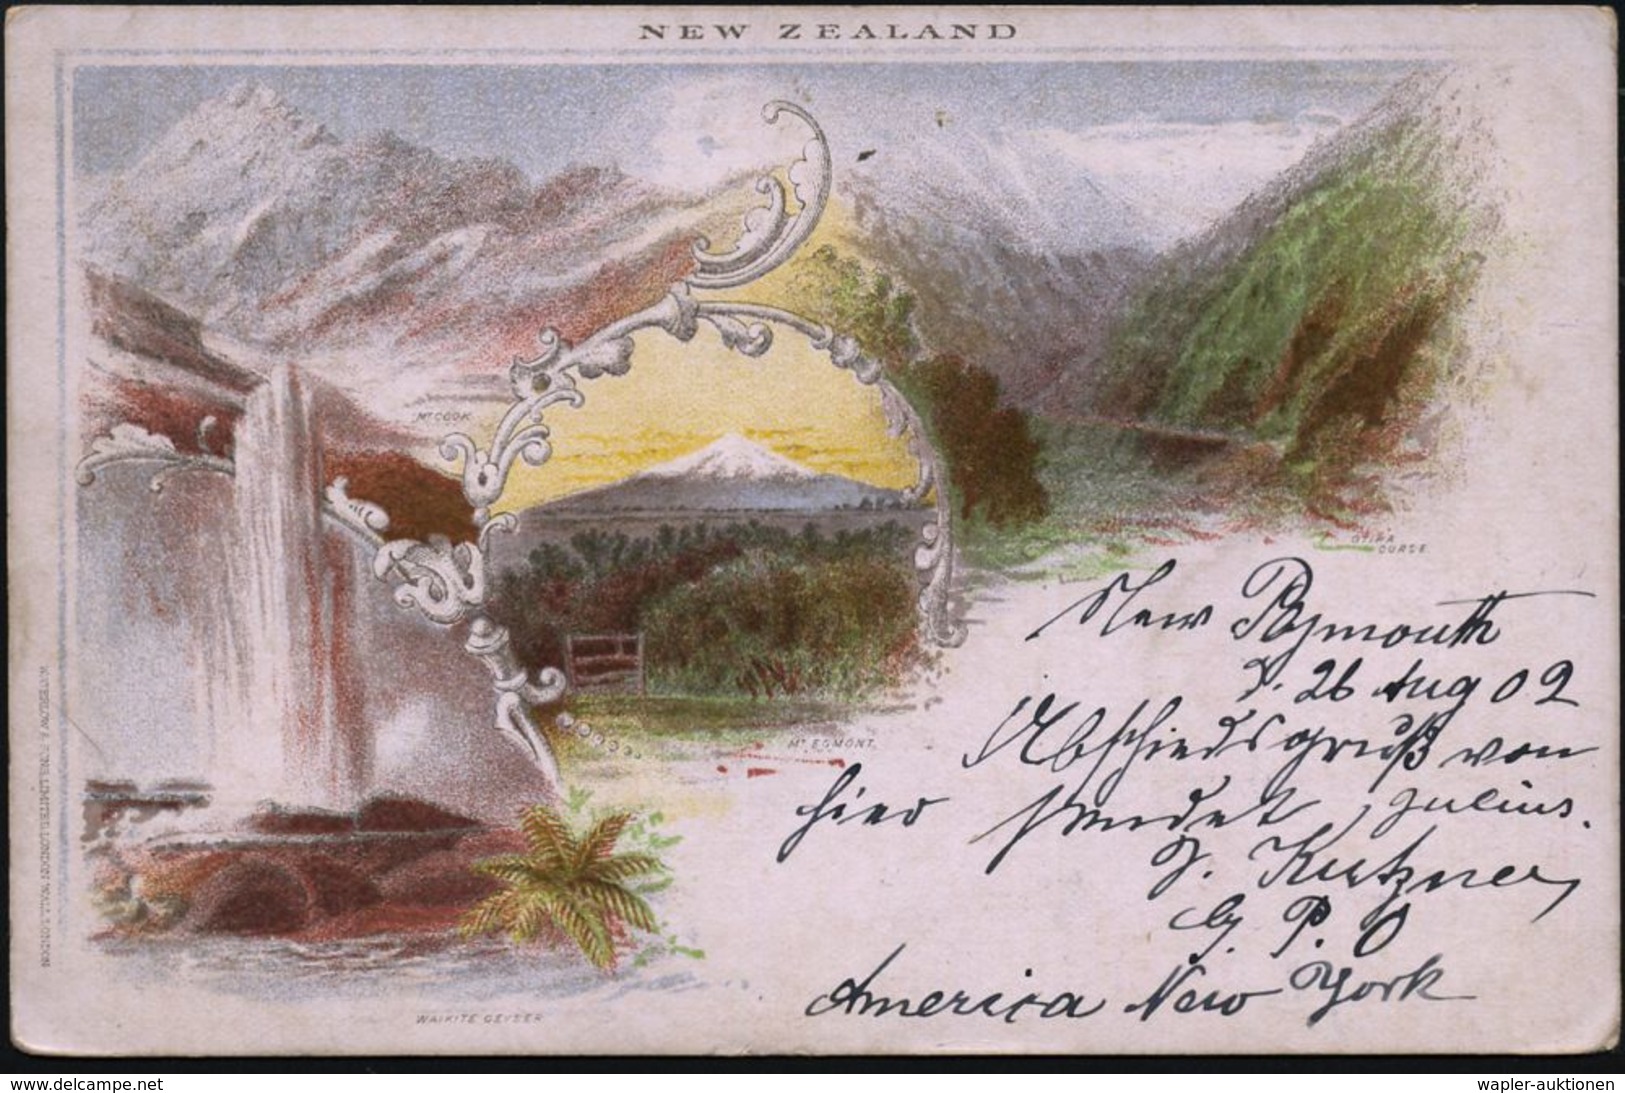 NEW ZEALAND
Mt COOK
OTIRA
GORGE.
Mt EGMONT.
WAIKITE GEYSER
WATERLOW & SONS LIMITED, LONDON WALL, LONDON
New Plymouth
d. 26 Aug 02
Abschiedsgruß von
hier sendet, Julius.
J. Kutzner,
G. P. O
America New York
www.delcampe.net
wapler-auktionen